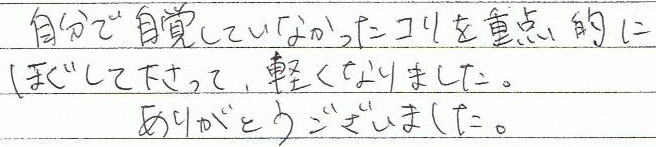 自分で自覚していなかったコリを重点的に
ほぐして下さって、軽くなりました。
ありがとうございました。